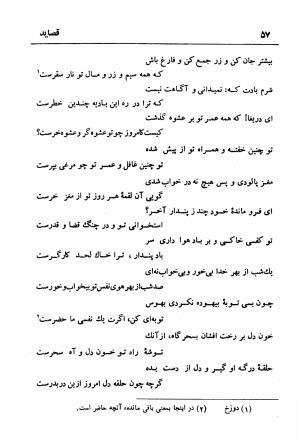 ۵۷
قصاید
بیشتر جان کن و زر جمع کن و فارغ باش
که همه سیم و زر و مال تو نار سقرست۱
شرم بادت که: نمیدانی و آگاهت نیست
که ترا در ره این بادیه چندین خطرست
ای دریغا! که همه عمر تو بر عشوه گذشت
کیست کامروز چو تو عشوه گر و عشوه خرست؟
تو چنین خفته و همراه تو از پیش شده
تو چنین غافل و عمر تو چو مرغی بپرست
مغز پالودی و پس هیچ نه در خواب شدی
گویی آن لقمهٔ هر روز تو از مغز خرست
ای فرو ماندهٔ خود چند ز پندار آخر؟
استخوانی تو و در چنگ قضا و قدرست
تو کفی خاکی و بر باد هوا داری سر
باد پندار، ترا خاك لحد کارگرست
یك شب از بهر خدا بی خور و بی خواب نه‌ای
صد شب از بهر هوی نفس تو بیخواب و خورست
چون بسی توبهٔ بیهوده نکردی بهوس
توبه‌ای کن، اگرت یك نفسی ما حضرست۲
خون دل بر رخت افشان بسحرگاه، از آنك
توشهٔ راه تو خون دل و آه سحرست
حلقهٔ درگه او گیر و دل از دست بده
گرچه چون حلقه دل امروز ازین در بدرست
(۱) دوزخ (۲) در اینجا بمعنی باقی مانده، آنچه حاضر است.